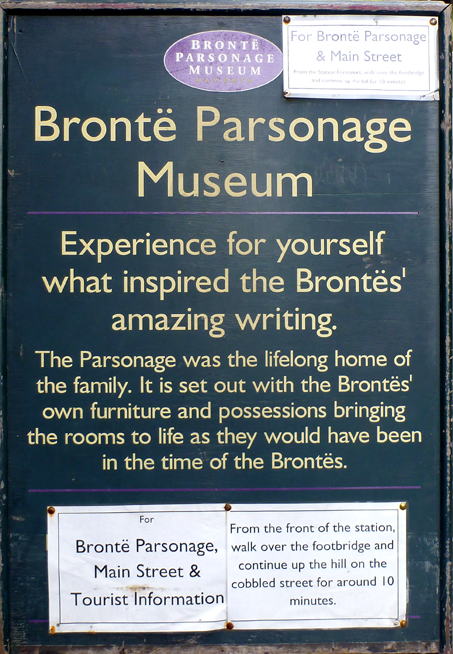 BRONTË
PARSONAGE
MUSEUM
For Brontë Parsonage
& Main Street
From the Station Forecourt, walk over the footbridge
and continue up the hill for 10 minutes.
Brontë Parsonage
Museum
Experience for yourself
what inspired the Brontës'
amazing writing.
The Parsonage was the lifelong home of
the family. It is set out with the Brontës'
own furniture and possessions bringing
the rooms to life as they would have been
in the time of the Brontës.
For
Brontë Parsonage,
Main Street &
Tourist Information
From the front of the station,
walk over the footbridge and
continue up the hill on the
cobbled street for around 10
minutes.